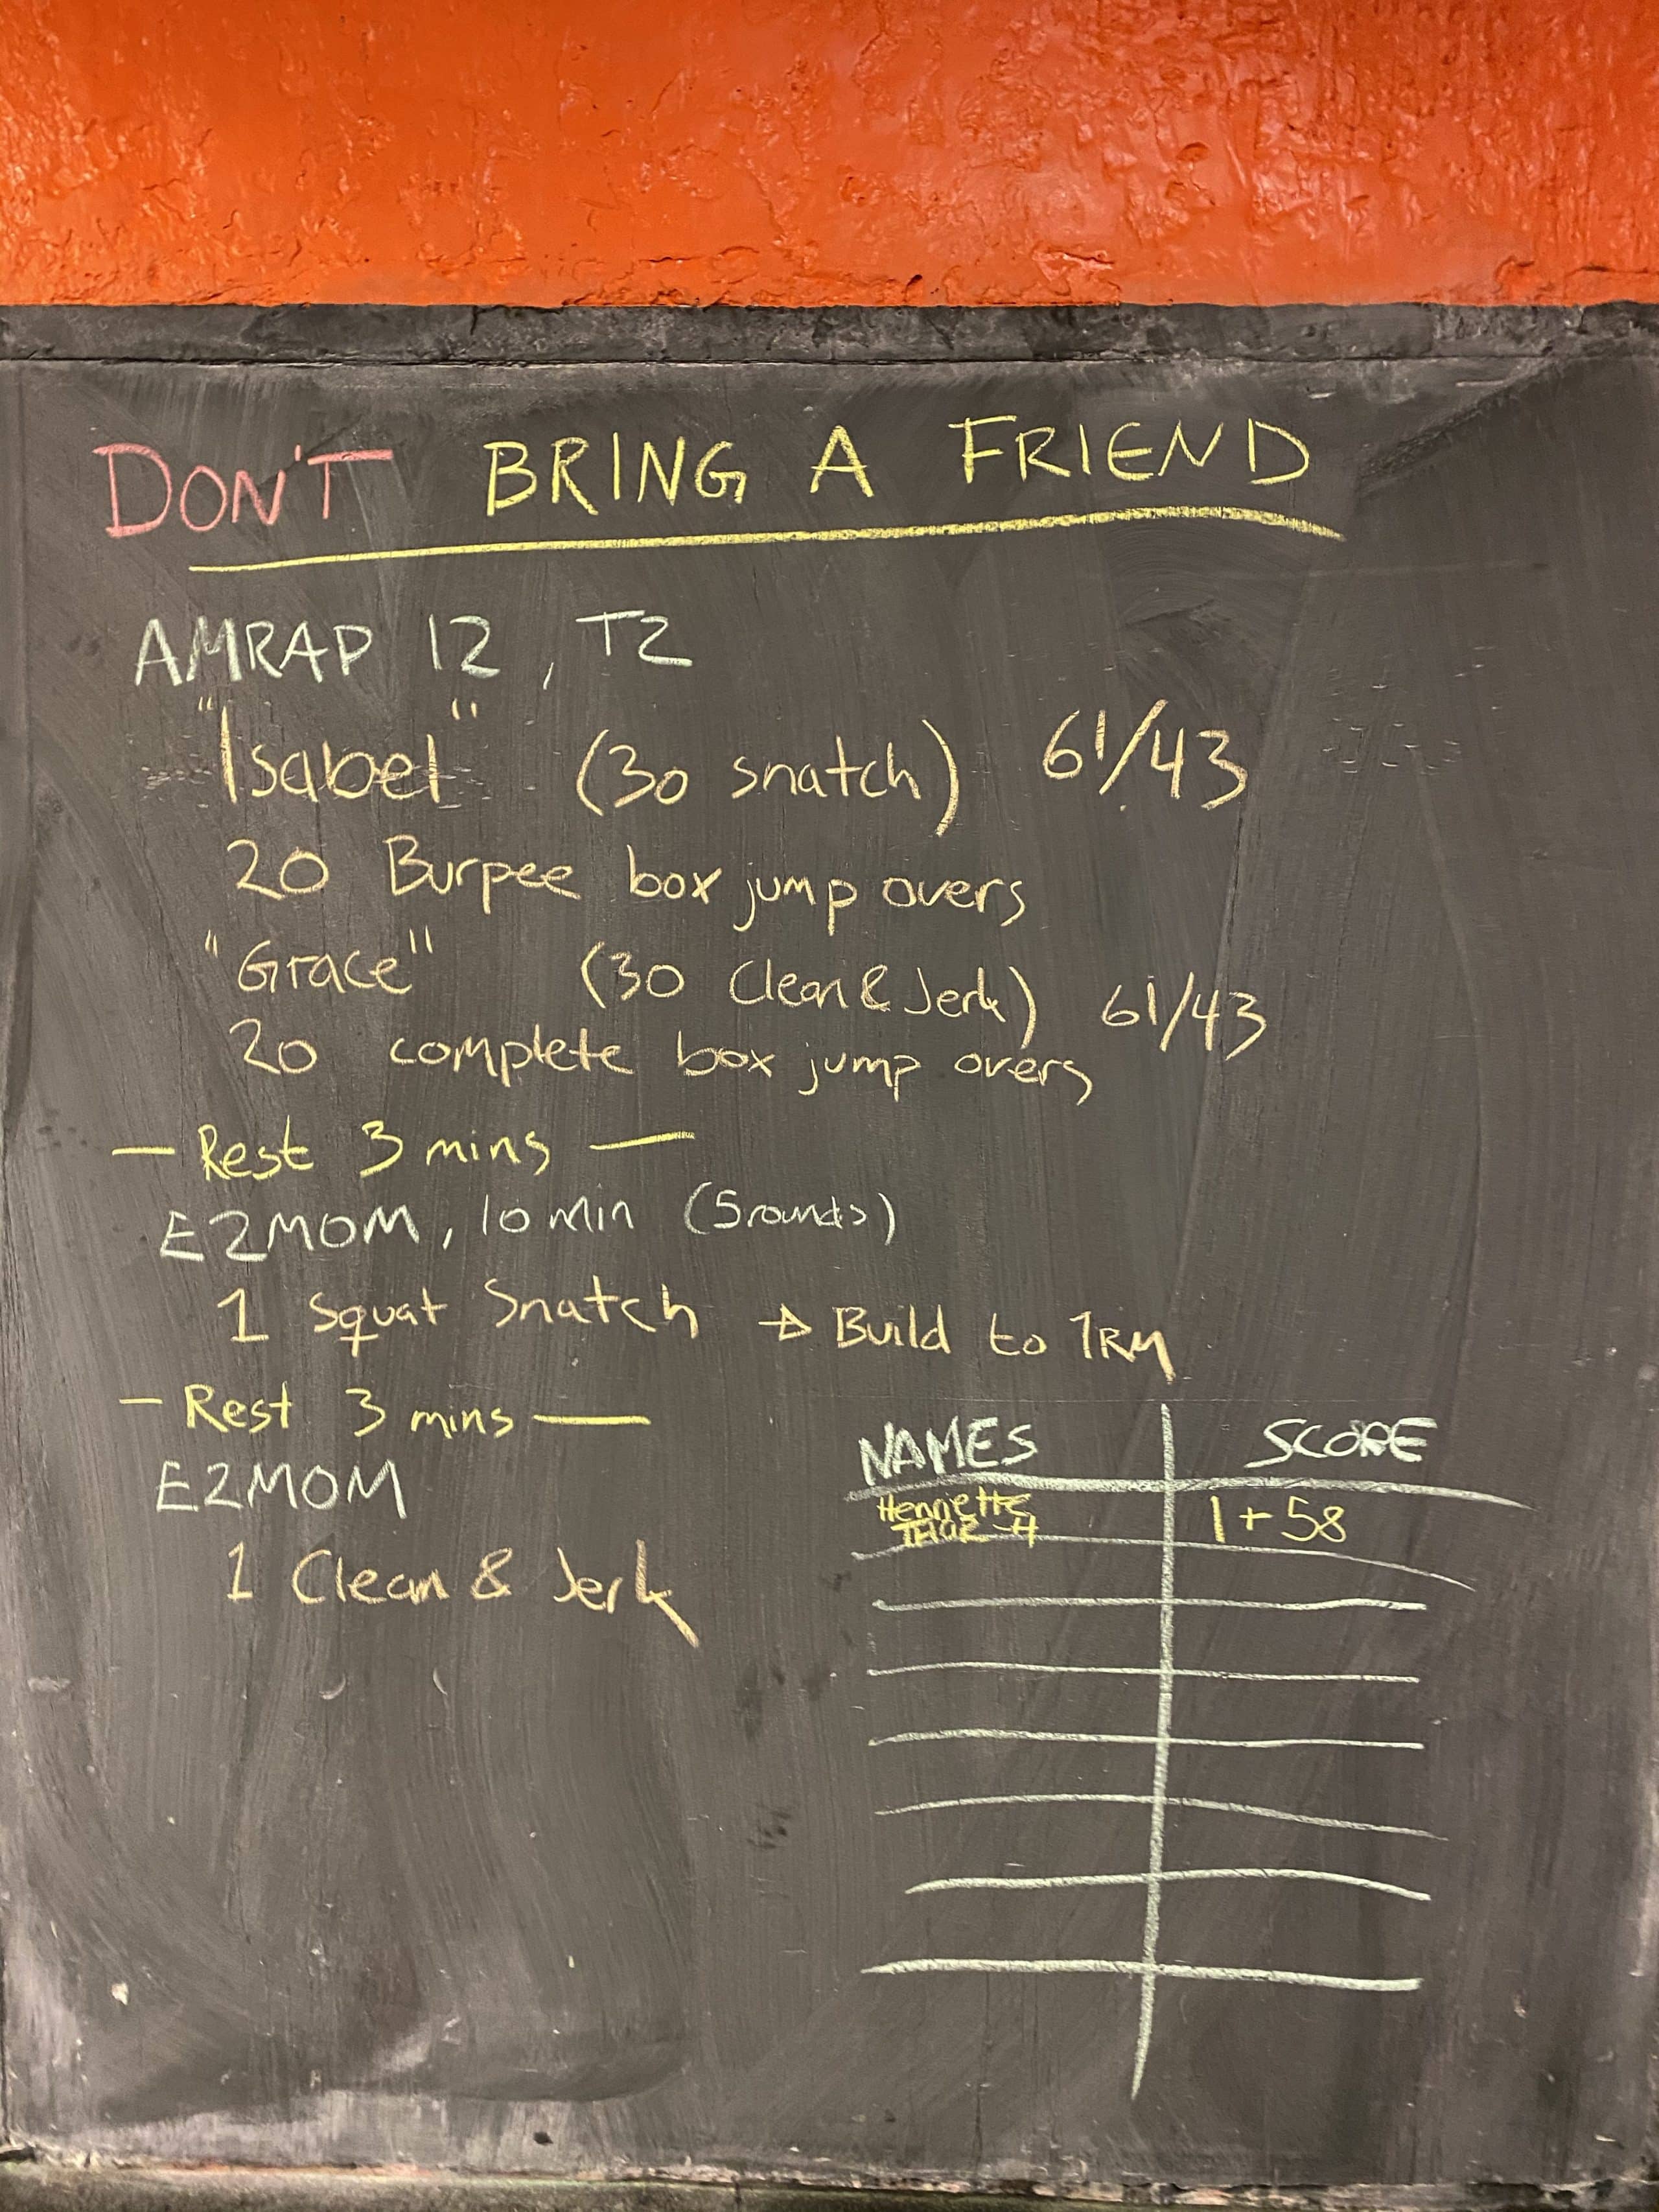 DON'T BRING A FRIEND
AMRAP 12, T2
"Isabel" (30 snatch) 61/43
20 Burpee box jump overs
"Grace" (30 Clean & Jerk) 61/43
20 complete box jump overs
— Rest 3 mins —
E2MOM, 10 min (5 rounds)
1 Squat Snatch → Build to 1RM
— Rest 3 mins —
E2MOM
1 Clean & Jerk
NAMES SCORE
Henriette 1+58